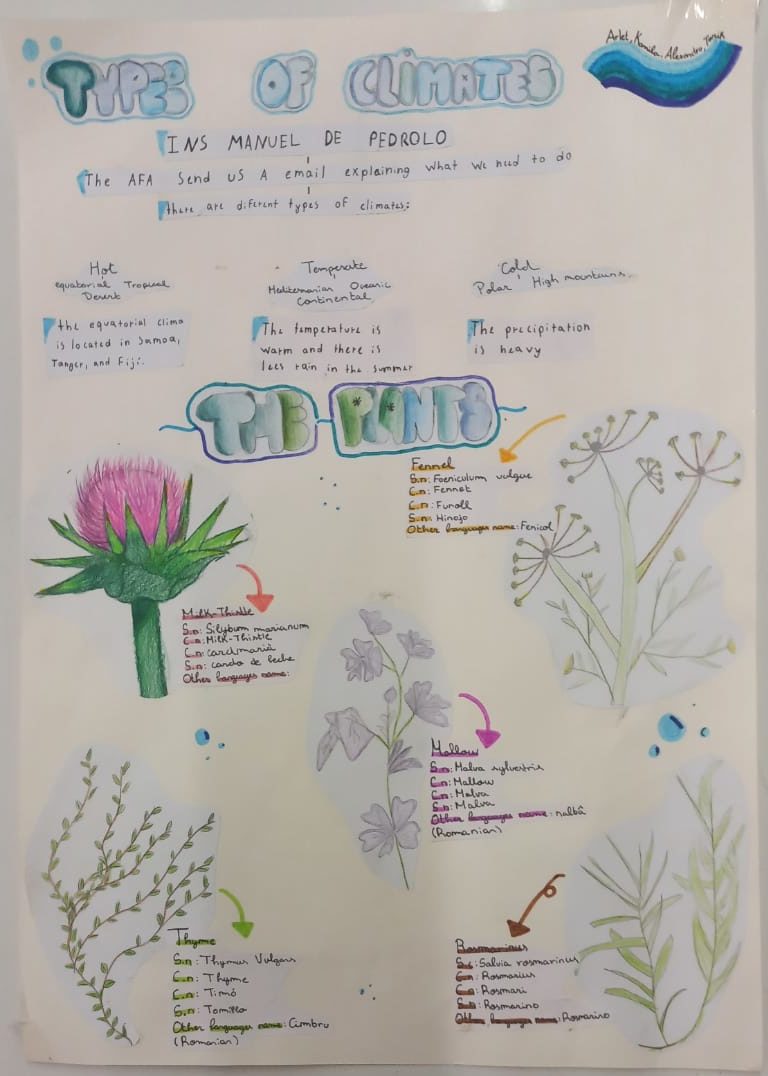 Arlet, Kamila, Alexandra,
TYPES OF CLIMATES
INS MANUEL DE PEDROLO
The AFA Send us A email explaining what we need to do
there are diferent types of climates:
Hot
equatorial Tropical
Desert
Temperate
Mediterranian Oceanic
Continental
Cold
Polar High mountains.
the equatorial clima
is located in Samoa,
Tanger, and Fiji.
The temperature is
warm and there is
lees rain in the summer
The precipitation
is heavy
THE PLANTS
Fennel
S.n: Foeniculum vulgue
C.n: Fennet
C.n: Funoll
S.n: Hinojo
Other languages name: Fenicol
Milk-Thistle
S.n: Silybum marianum
C.n: Milk-Thistle
C.n: card marià
S.n: cardo de leche
Other languages name:
Mallow
S.n: Malva sylvestris
C.n: Mallow
C.n: Malva
S.n: Malva
Other languages name: nalbâ
(Romanian)
Thyme
S.n: Thymus Vulgars
C.n: Thyme
C.n: Timó
S.n: Tomillo
Other languages name: Cimbru
(Romanian)
Rosmarinus
S.c: Salvia rosmarinus
C.n: Rosmarius
C.n: Rosmari
S.n: Rosmarino
Other languages name: Rosmarino